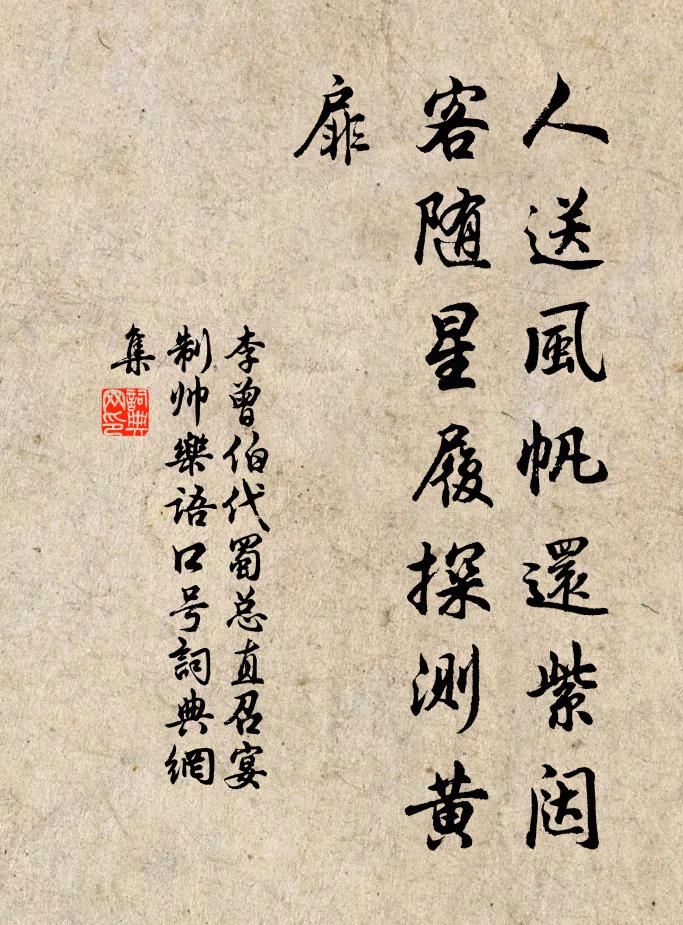 人送風帆還紫闼
客随星履探测黄
扉
李曾伯代蜀总直召宴
制帅樂語口号詞典網
集
詞典
网印